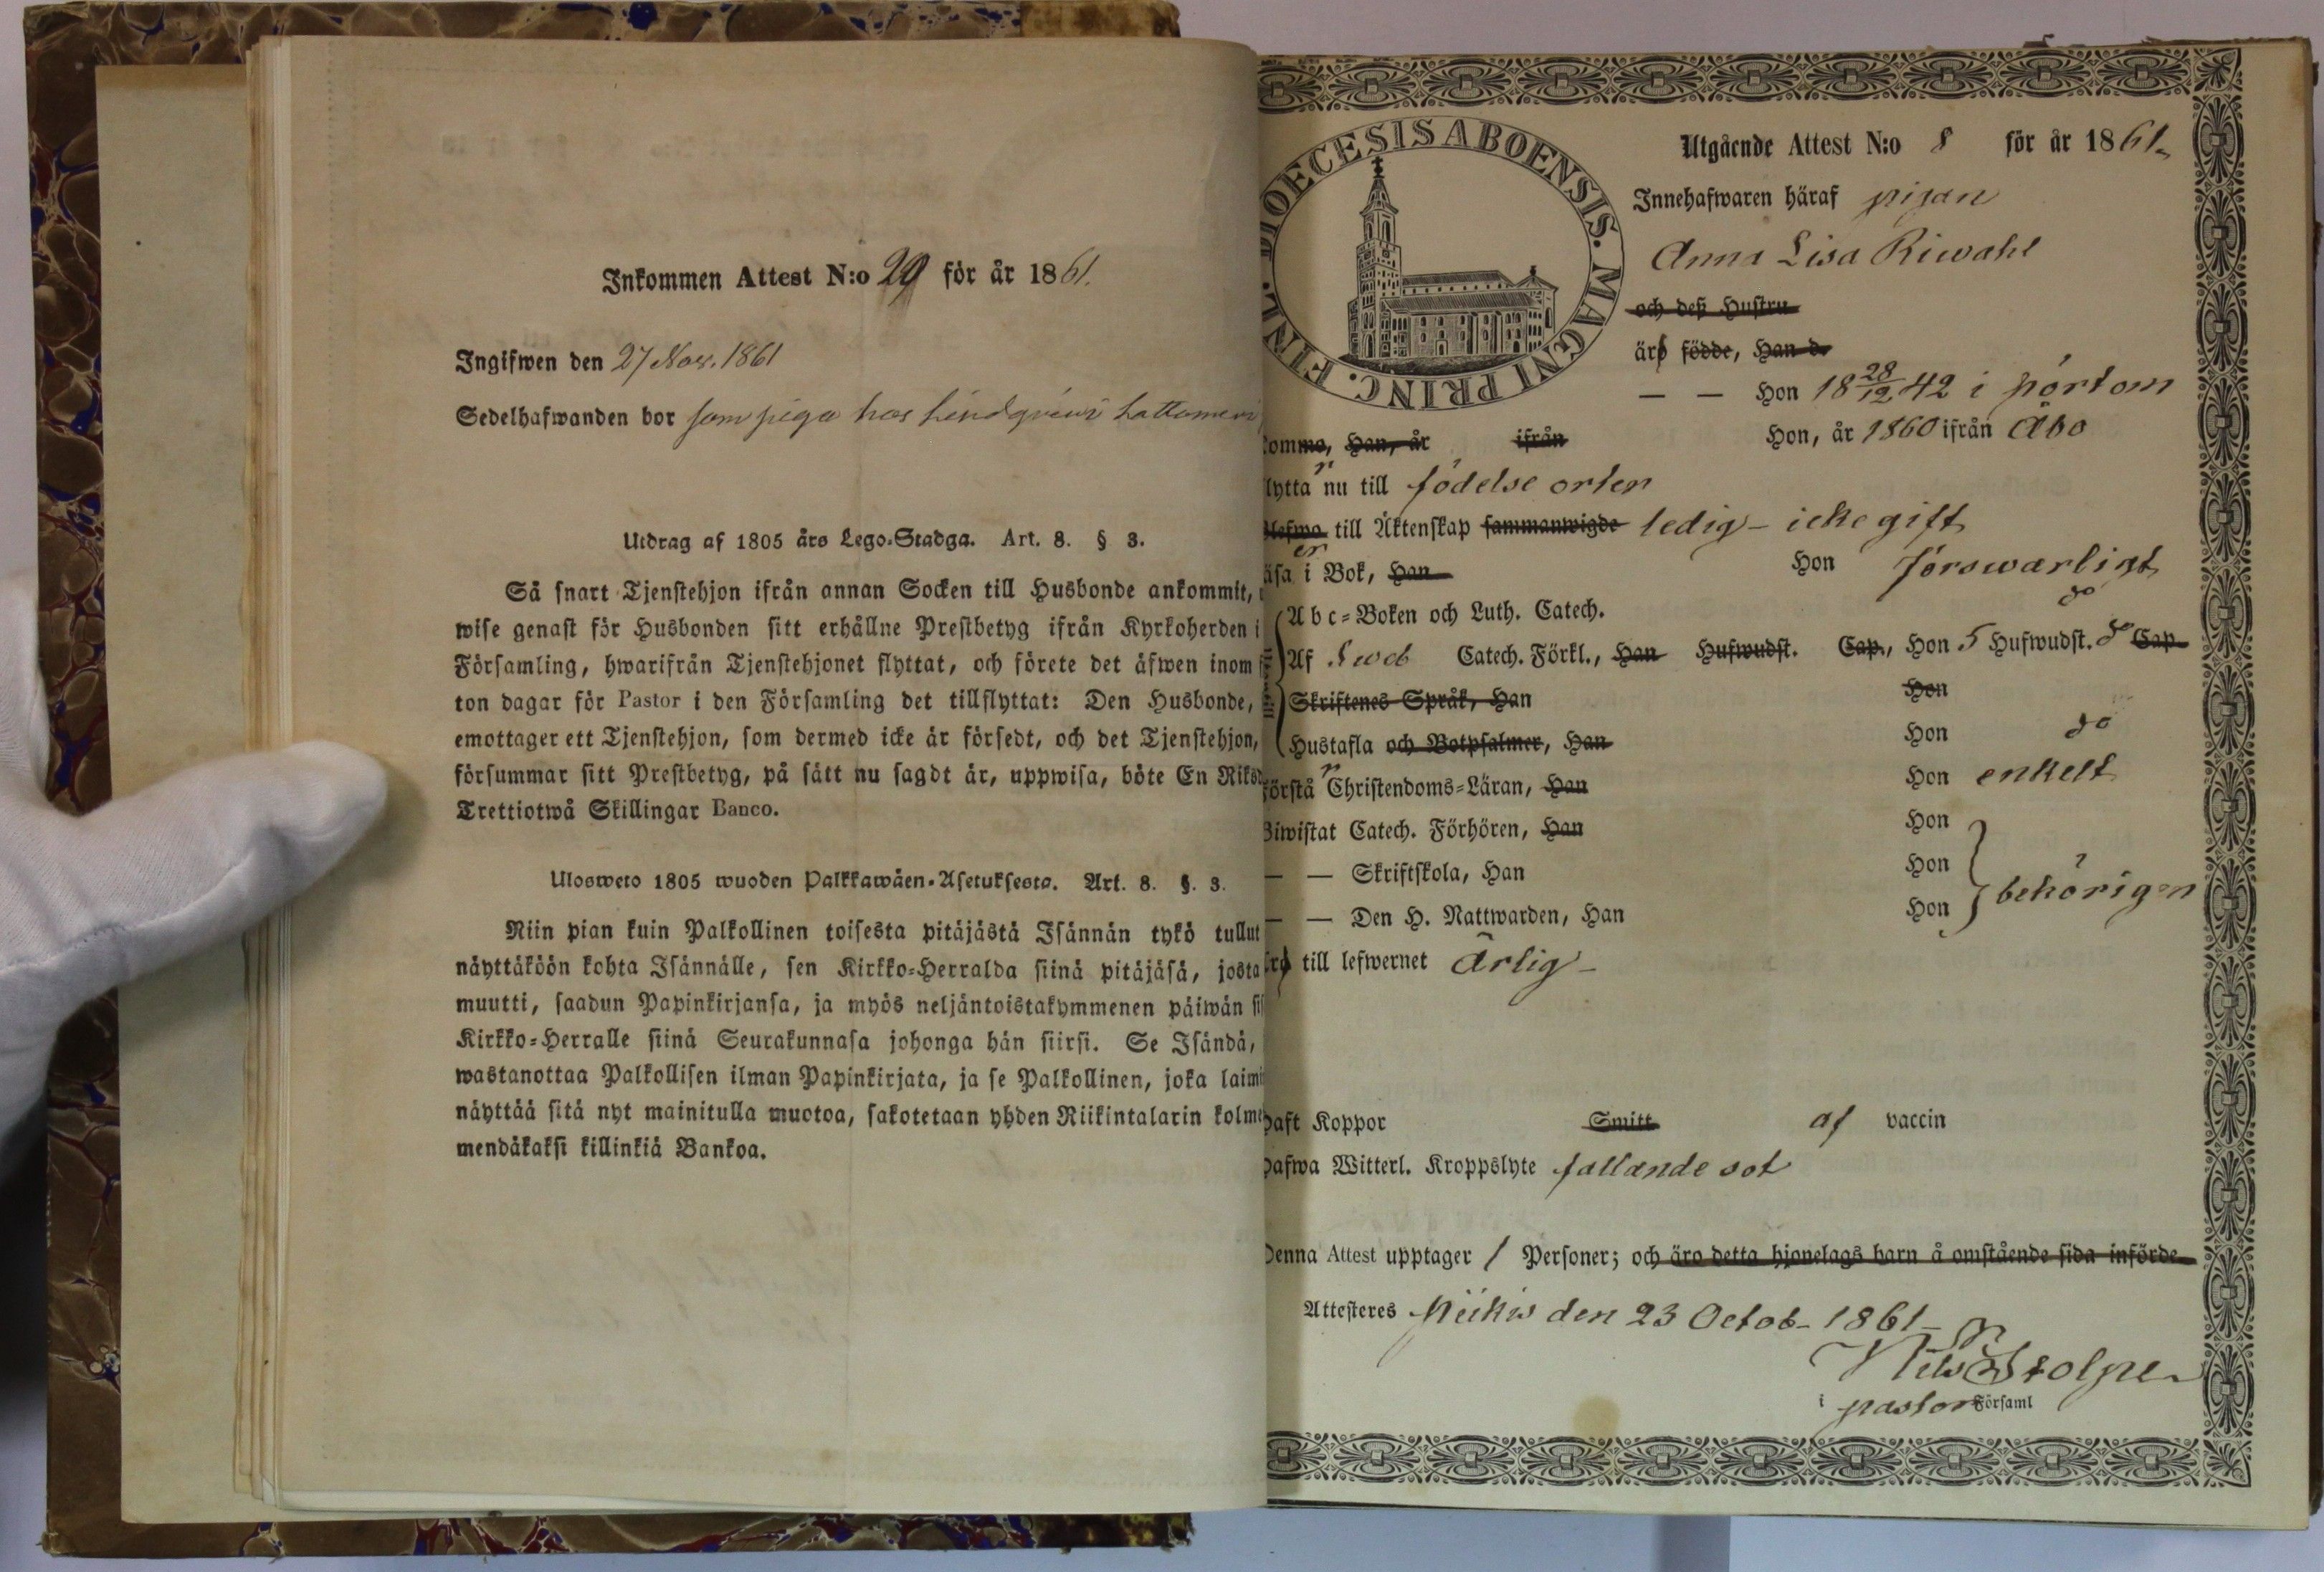 Inkommen Attest N:o 29 för år 1861.
Ingifwen den 27 Nov. 1861
Sedelhafwanden bor som piga hos Lindqvist
Utdrag af 1805 års Lego-Stadga. Art. 8. § 3.
Så snart Tjenstehjon ifrån annan Socken till Husbonde ankommit,
wise genast för Husbonden sitt erhållne Prestbetyg ifrån Kyrkoherden i
Församling, hwarifrån Tjenstehjonet flyttat, och förete det äfwen inom
ton dagar för Pastor i den Församling det tillflyttat: Den Husbonde,
emottager ett Tjenstehjon, som dermed icke är försedt, och det Tjenstehjon,
försummar sitt Prestbetyg, på sätt nu sagdt är, uppwisa, böte En Riksd
Trettiotwå Skillingar Banco.
Ulosweto 1805 wuoden Palkkawäen-Asetuksesta. Art. 8. §. 3.
Niin pian kuin Palkollinen toisesta pitäjästä Isännän tykö tullut
näyttäköön kohta Isännälle, sen Kirkko-Herralda siinä pitäjäsä, josta
muutti, saadun Papinkirjansa, ja myös neljäntoistakymmenen päiwän sis
Kirkko-Herralle siinä Seurakunnasa johonga hän siirsi. Se Isändä,
wastanottaa Palkollisen ilman Papinkirjata, ja se Palkollinen, joka laimi
näyttää sitä nyt mainitulla muotoa, sakotetaan yhden Riikintalarin kolme
mendäkaksi killinkiä Bankoa.
DIOECESIS ABOENSIS. MAGNI PRINC. FINL.
Utgående Attest N:o 8 för år 1861.
Innehafwaren häraf pigan
Anna Lisa Riwahl
och deß Hustru
äro födde, Han d.
— — Hon 18 28/12 42 i Pörtom
komma, Han, år ifrån Hon, år 1860 ifrån Åbo
flyttar nu till födelse orten
Blefwo till Äktenskap sammanwigde ledig - icke gift
Läser i Bok, Han Hon förswarligt
Abc-Boken och Luth. Catech. do
Af Sweb Catech. Förkl., Han Hufwudst. Cap., Hon 5 Hufwudst. do Cap.
Skriftenes Språk, Han Hon
Hustafla och Botpsalmer, Han Hon do
Förstår Christendoms-Läran, Han Hon enkelt
Biwistat Catech. Förhören, Han Hon
— — Skriftskola, Han Hon behörigen
— — Den H. Nattwarden, Han Hon
Äro till lefwernet Ärlig -
Haft Koppor Smitt af vaccin
Hafwa Witterl. Kroppslyte fallande sot
Denna Attest upptager 1 Personer; och äro detta hjonelags barn å omstående sida införde
Attesteres Piikis den 23 Octob- 1861 -
Nils Stolpe
i pastor Församl